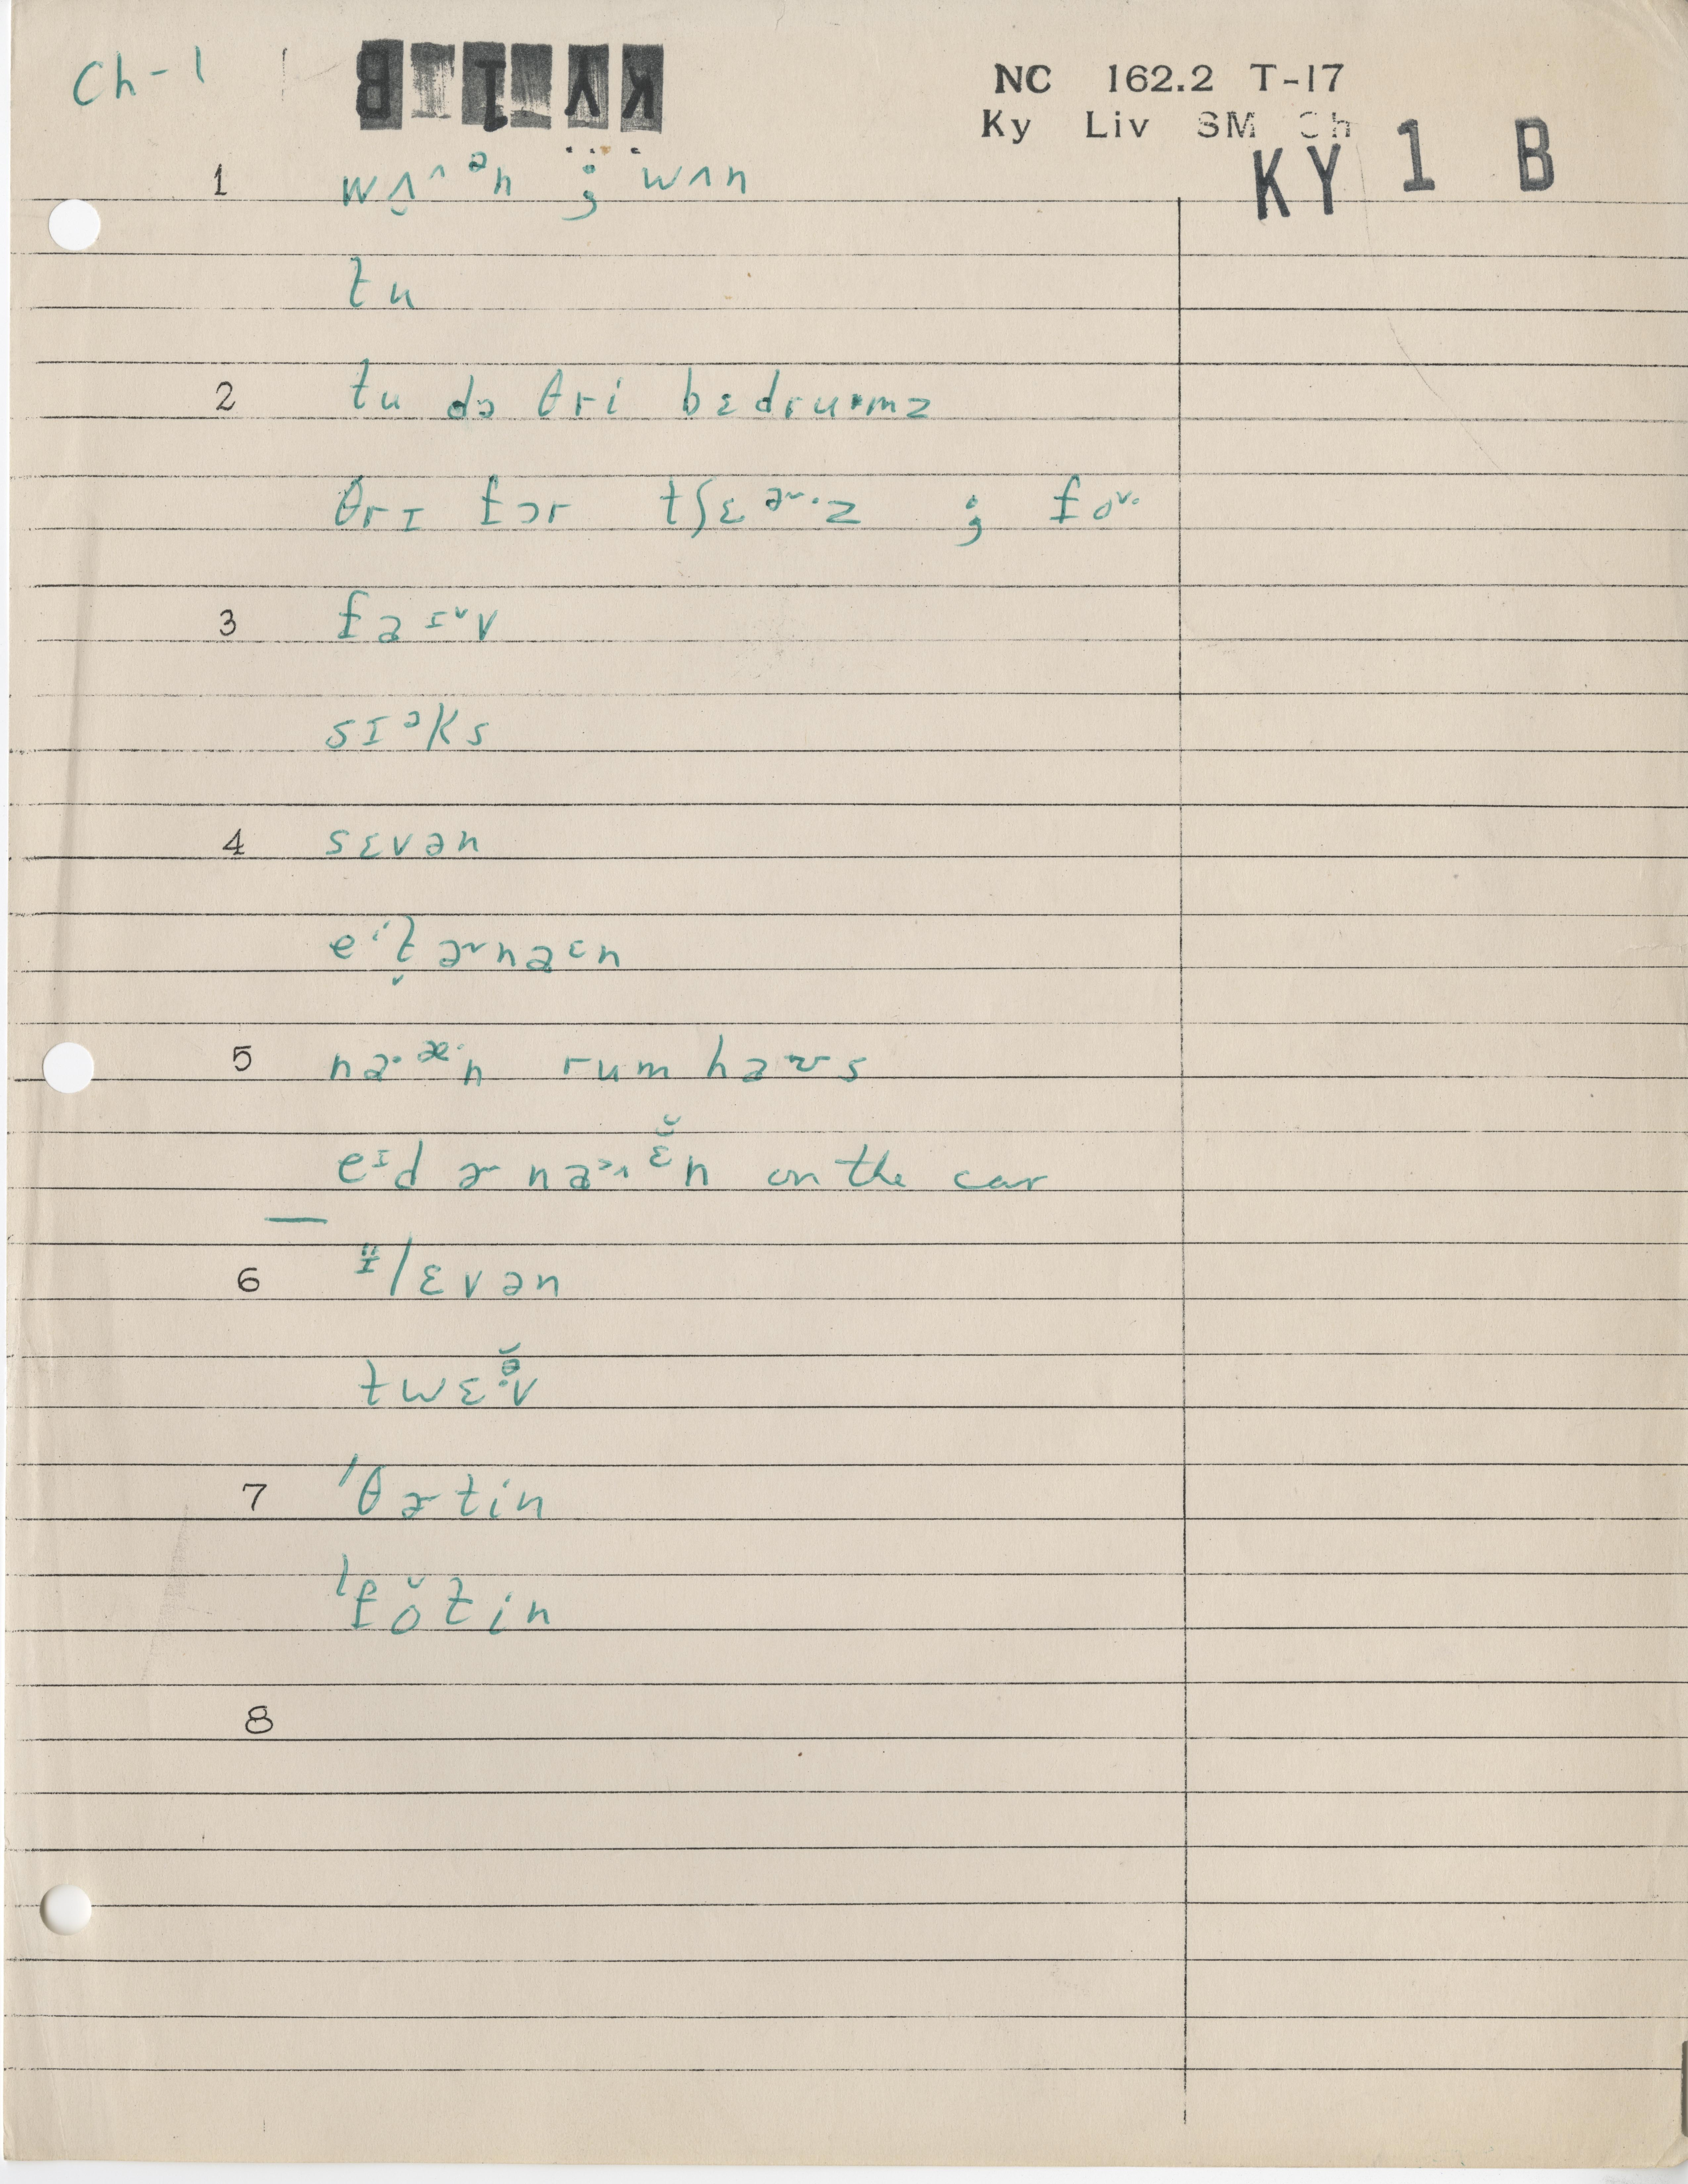 Ch-1
KY 1 B
NC 162.2 T-17
Ky Liv SM Ch
KY 1 B
1 wʌ̬^ᵊn ; wʌn
tu
2 tu də θri bɛdruᵚmz
θrɪ fɔr tʃɛɚ·z ; fo˞·
3 faᶦ˅v
sɪᵊks
4 sɛvən
eⁱt̬ ɚnaᵋn
5 na·ᵆ·n rum haʊs
eᶦd ɚ na>^ᵋ̆n on the car
6 ᵻ̈lɛvən
twɛv
7 ˈθɚtin
ˈfŏtin
8